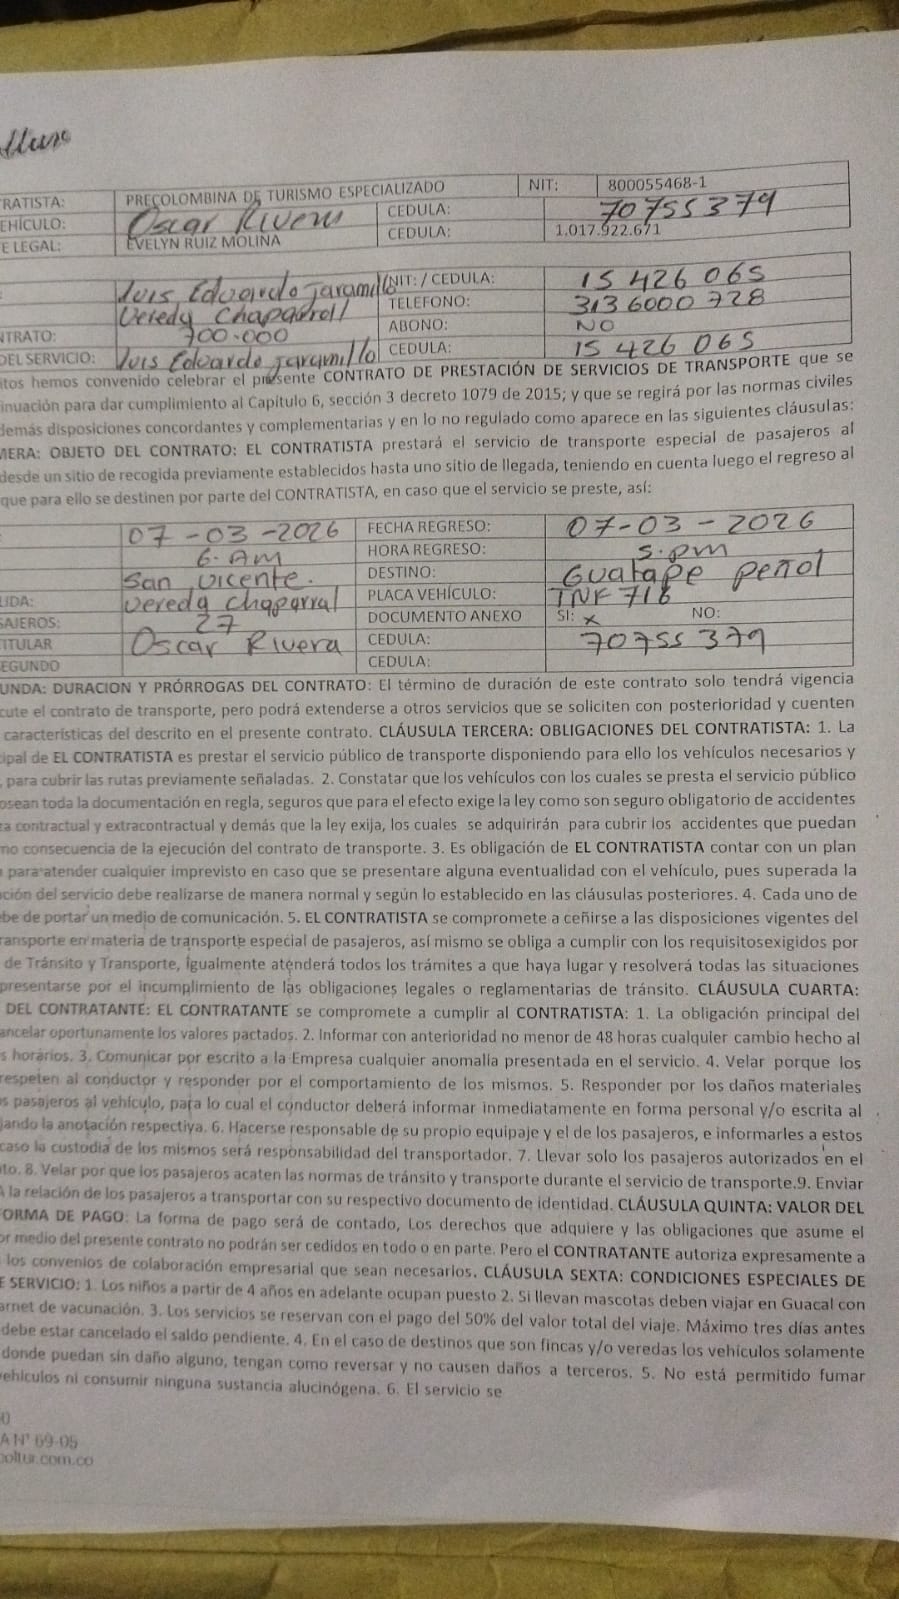 RATISTA: PRECOLOMBINA DE TURISMO ESPECIALIZADO NIT: 800055468-1
EHÍCULO: Oscar Rivera CEDULA: 70755379
E LEGAL: EVELYN RUIZ MOLINA CEDULA: 1,017.922.671
Luis Eduardo Jaramillo NIT: / CEDULA: 15 426 065
Vereda Chaparral TELEFONO: 313 6000 728
NTRATO: 700.000 ABONO: NO
DEL SERVICIO: Luis Eduardo Jaramillo CEDULA: 15 426 065
itos hemos convenido celebrar el presente CONTRATO DE PRESTACIÓN DE SERVICIOS DE TRANSPORTE que se
inuación para dar cumplimiento al Capítulo 6, sección 3 decreto 1079 de 2015; y que se regirá por las normas civiles
demás disposiciones concordantes y complementarias y en lo no regulado como aparece en las siguientes cláusulas:
MERA: OBJETO DEL CONTRATO: EL CONTRATISTA prestará el servicio de transporte especial de pasajeros al
desde un sitio de recogida previamente establecidos hasta uno sitio de llegada, teniendo en cuenta luego el regreso al
que para ello se destinen por parte del CONTRATISTA, en caso que el servicio se preste, así:
07-03-2026 FECHA REGRESO: 07-03-2026
6. AM HORA REGRESO: 5.pm
San Vicente. DESTINO: Guatape peñol
LIDA: vereda Chaparral PLACA VEHÍCULO: TNF 716
SAJEROS: 27 DOCUMENTO ANEXO SI: x NO:
TITULAR Oscar Rivera CEDULA: 70755379
SEGUNDO CEDULA:
UNDA: DURACION Y PRÓRROGAS DEL CONTRATO: El término de duración de este contrato solo tendrá vigencia
cute el contrato de transporte, pero podrá extenderse a otros servicios que se soliciten con posterioridad y cuenten
características del descrito en el presente contrato. CLÁUSULA TERCERA: OBLIGACIONES DEL CONTRATISTA: 1. La
cipal de EL CONTRATISTA es prestar el servicio público de transporte disponiendo para ello los vehículos necesarios y
, para cubrir las rutas previamente señaladas. 2. Constatar que los vehículos con los cuales se presta el servicio público
osean toda la documentación en regla, seguros que para el efecto exige la ley como son seguro obligatorio de accidentes
ra contractual y extracontractual y demás que la ley exija, los cuales se adquirirán para cubrir los accidentes que puedan
mo consecuencia de la ejecución del contrato de transporte. 3. Es obligación de EL CONTRATISTA contar con un plan
para atender cualquier imprevisto en caso que se presentare alguna eventualidad con el vehículo, pues superada la
ción del servicio debe realizarse de manera normal y según lo establecido en las cláusulas posteriores. 4. Cada uno de
be de portar un medio de comunicación. 5. EL CONTRATISTA se compromete a ceñirse a las disposiciones vigentes del
ransporte en materia de transporte especial de pasajeros, así mismo se obliga a cumplir con los requisitosexigidos por
de Tránsito y Transporte, Igualmente atenderá todos los trámites a que haya lugar y resolverá todas las situaciones
presentarse por el incumplimiento de las obligaciones legales o reglamentarias de tránsito. CLÁUSULA CUARTA:
DEL CONTRATANTE: EL CONTRATANTE se compromete a cumplir al CONTRATISTA: 1. La obligación principal del
ancelar oportunamente los valores pactados. 2. Informar con anterioridad no menor de 48 horas cualquier cambio hecho al
s horarios. 3. Comunicar por escrito a la Empresa cualquier anomalía presentada en el servicio. 4. Velar porque los
respeten al conductor y responder por el comportamiento de los mismos. 5. Responder por los daños materiales
os pasajeros al vehículo, para lo cual el conductor deberá informar inmediatamente en forma personal y/o escrita al
jando la anotación respectiva. 6. Hacerse responsable de su propio equipaje y el de los pasajeros, e informarles a estos
caso la custodia de los mismos será responsabilidad del transportador. 7. Llevar solo los pasajeros autorizados en el
ato. 8. Velar por que los pasajeros acaten las normas de tránsito y transporte durante el servicio de transporte.9. Enviar
A la relación de los pasajeros a transportar con su respectivo documento de identidad. CLÁUSULA QUINTA: VALOR DEL
FORMA DE PAGO: La forma de pago será de contado, Los derechos que adquiere y las obligaciones que asume el
or medio del presente contrato no podrán ser cedidos en todo o en parte. Pero el CONTRATANTE autoriza expresamente a
los convenios de colaboración empresarial que sean necesarios. CLÁUSULA SEXTA: CONDICIONES ESPECIALES DE
E SERVICIO: 1. Los niños a partir de 4 años en adelante ocupan puesto 2. Si llevan mascotas deben viajar en Guacal con
arnet de vacunación. 3. Los servicios se reservan con el pago del 50% del valor total del viaje. Máximo tres días antes
debe estar cancelado el saldo pendiente. 4. En el caso de destinos que son fincas y/o veredas los vehículos solamente
donde puedan sin daño alguno, tengan como reversar y no causen daños a terceros. 5. No está permitido fumar
vehículos ni consumir ninguna sustancia alucinógena. 6. El servicio se
0
A N° 69-05
oltur.com.co